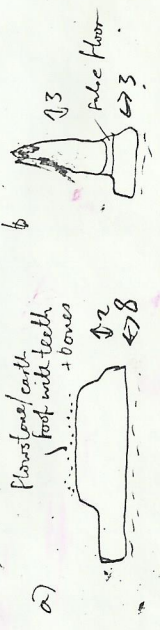 a)
Flowstone/earth
roof with teeth
+ bones
↕2
↔8
b
↕3
false floor
↔3